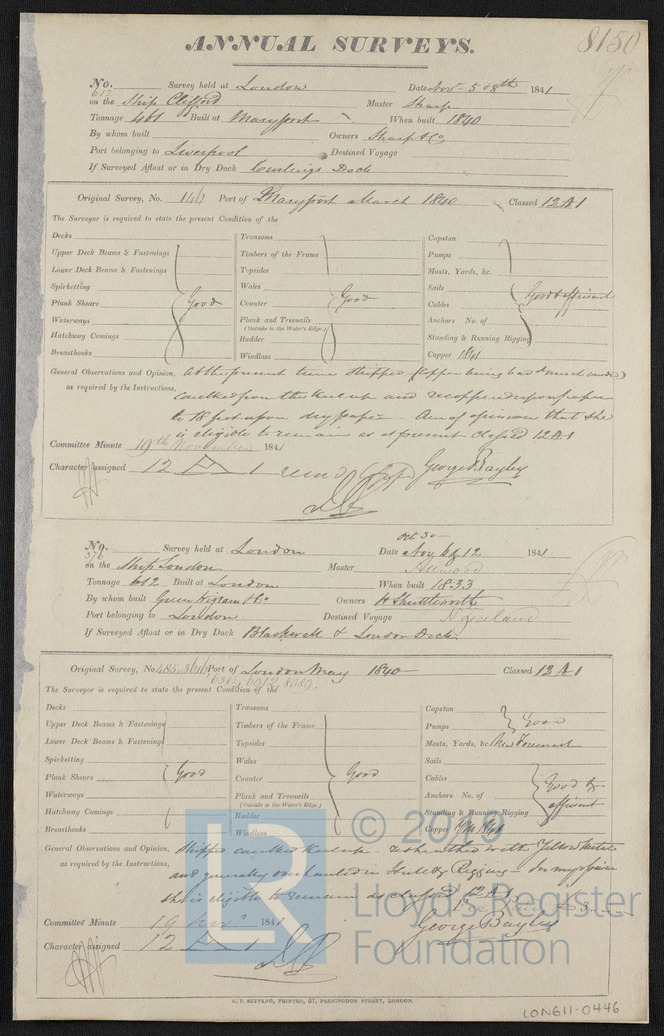 8150
ANNUAL SURVEYS.
No. 612 Survey held at London Date Nov 5 & 8th 1841
on the Ship Clifford Master Sharp
Tonnage 461 Built at Maryport When built 1840
By whom built Owners Sharp & Co
Port belonging to Liverpool Destined Voyage
If Surveyed Afloat or in Dry Dock Curlings Dock
Original Survey, No. 146 Port of Maryport March 1840 Classed 12 A 1
The Surveyor is required to state the present Condition of the
Decks Transoms Capstan
Upper Deck Beams & Fastenings Timbers of the Frame Pumps
Lower Deck Beams & Fastenings Topsides Masts, Yards, &c.
Spirketting Wales Sails
Plank Shears Good Counter Good Cables Good & efficient
Waterways Plank and Treenails Anchors No. of
(Outside to the Water's Edge.)
Hatchway Comings Rudder Standing & Running Rigging
Breasthooks Windlass Copper 1841
General Observations and Opinion, At the present time stripped (Copper being bad
as required by the Instructions, caulked from the keel up and recoppered upon paper
to 18 feet upon dry paper - Am of opinion that she
is eligible to remain as at present Classed 12 A 1
Committee Minute 19th November 1841
Character assigned 12 A 1 George Bayley
No. 376 Survey held at London Date Oct 30 Nov 12 1841
on the Ship London Master Attwood
Tonnage 612 Built at London When built 1833
By whom built Green Wigram & Co Owners H Shuttleworth
Port belonging to London Destined Voyage N Zealand
If Surveyed Afloat or in Dry Dock Blackwall & London Dock
Original Survey, No. 485. Port of London May 1840 Classed 12 A 1
The Surveyor is required to state the present Condition of the
Decks Transoms Capstan
Upper Deck Beams & Fastenings Timbers of the Frame Pumps Good
Lower Deck Beams & Fastenings Topsides Masts, Yards, &c. New Foremast
Spirketting Wales Sails
Plank Shears Good Counter Good Cables Good & efficient
Waterways Plank and Treenails Anchors No. of
(Outside to the Water's Edge.)
Hatchway Comings Rudder Standing & Running Rigging
Breasthooks Windlass Copper
General Observations and Opinion, Stripped caulked keel up - resheathed with Yellow Metal
as required by the Instructions, and generally overhauled in Hull & Rigging - In my opinion
she is eligible to remain as classed 12 A 1
Committee Minute 19 Nov 1841
Character assigned 12 A 1 George Bayley
© 2018
LR
Lloyd's Register
Foundation
C. F. SEYFANG, PRINTER, 57, FARRINGDON STREET, LONDON.
LON611-0446